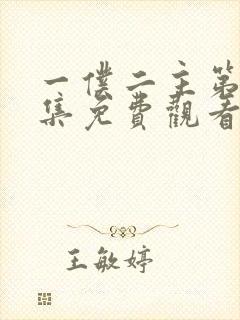 一僕二主第
集免費觀看
王敏婷